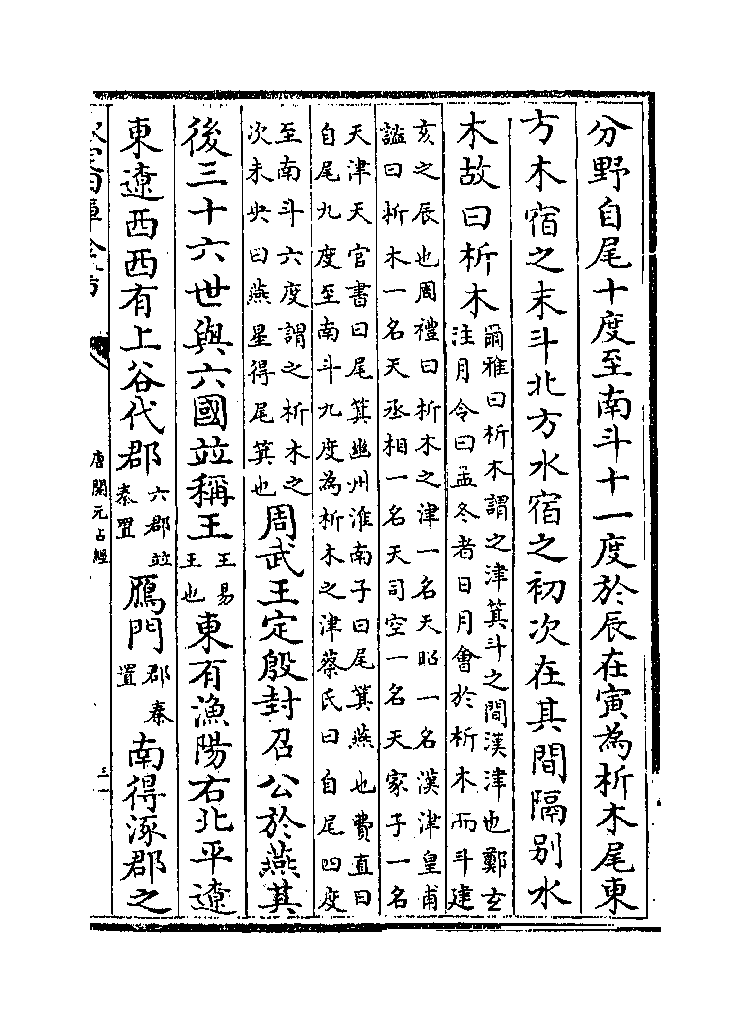 分野自尾十度至南斗十一度於辰在寅為析木尾東
方木宿之末斗北方水宿之初次在其間隔別水
木故曰析木爾雅曰析木謂之津箕斗之間漢津也鄭玄
注月令曰孟冬者日月會於析木而斗建
亥之辰也周禮曰析木之津一名天昭一名漢津皇甫
謐曰析木一名天丞相一名天司空一名天家子一名
天津天官書曰尾箕幽州淮南子曰尾箕燕也費直曰
自尾九度至南斗九度為析木之津蔡氏曰自尾四度
至南斗六度謂之析木之
次未央曰燕星得尾箕也周武王定殷封召公於燕其
後三十六世與六國竝稱王王易王也東有漁陽右北平遼
東遼西西有上谷代郡六郡竝秦置鴈門郡秦置南得涿郡之
唐開元占經